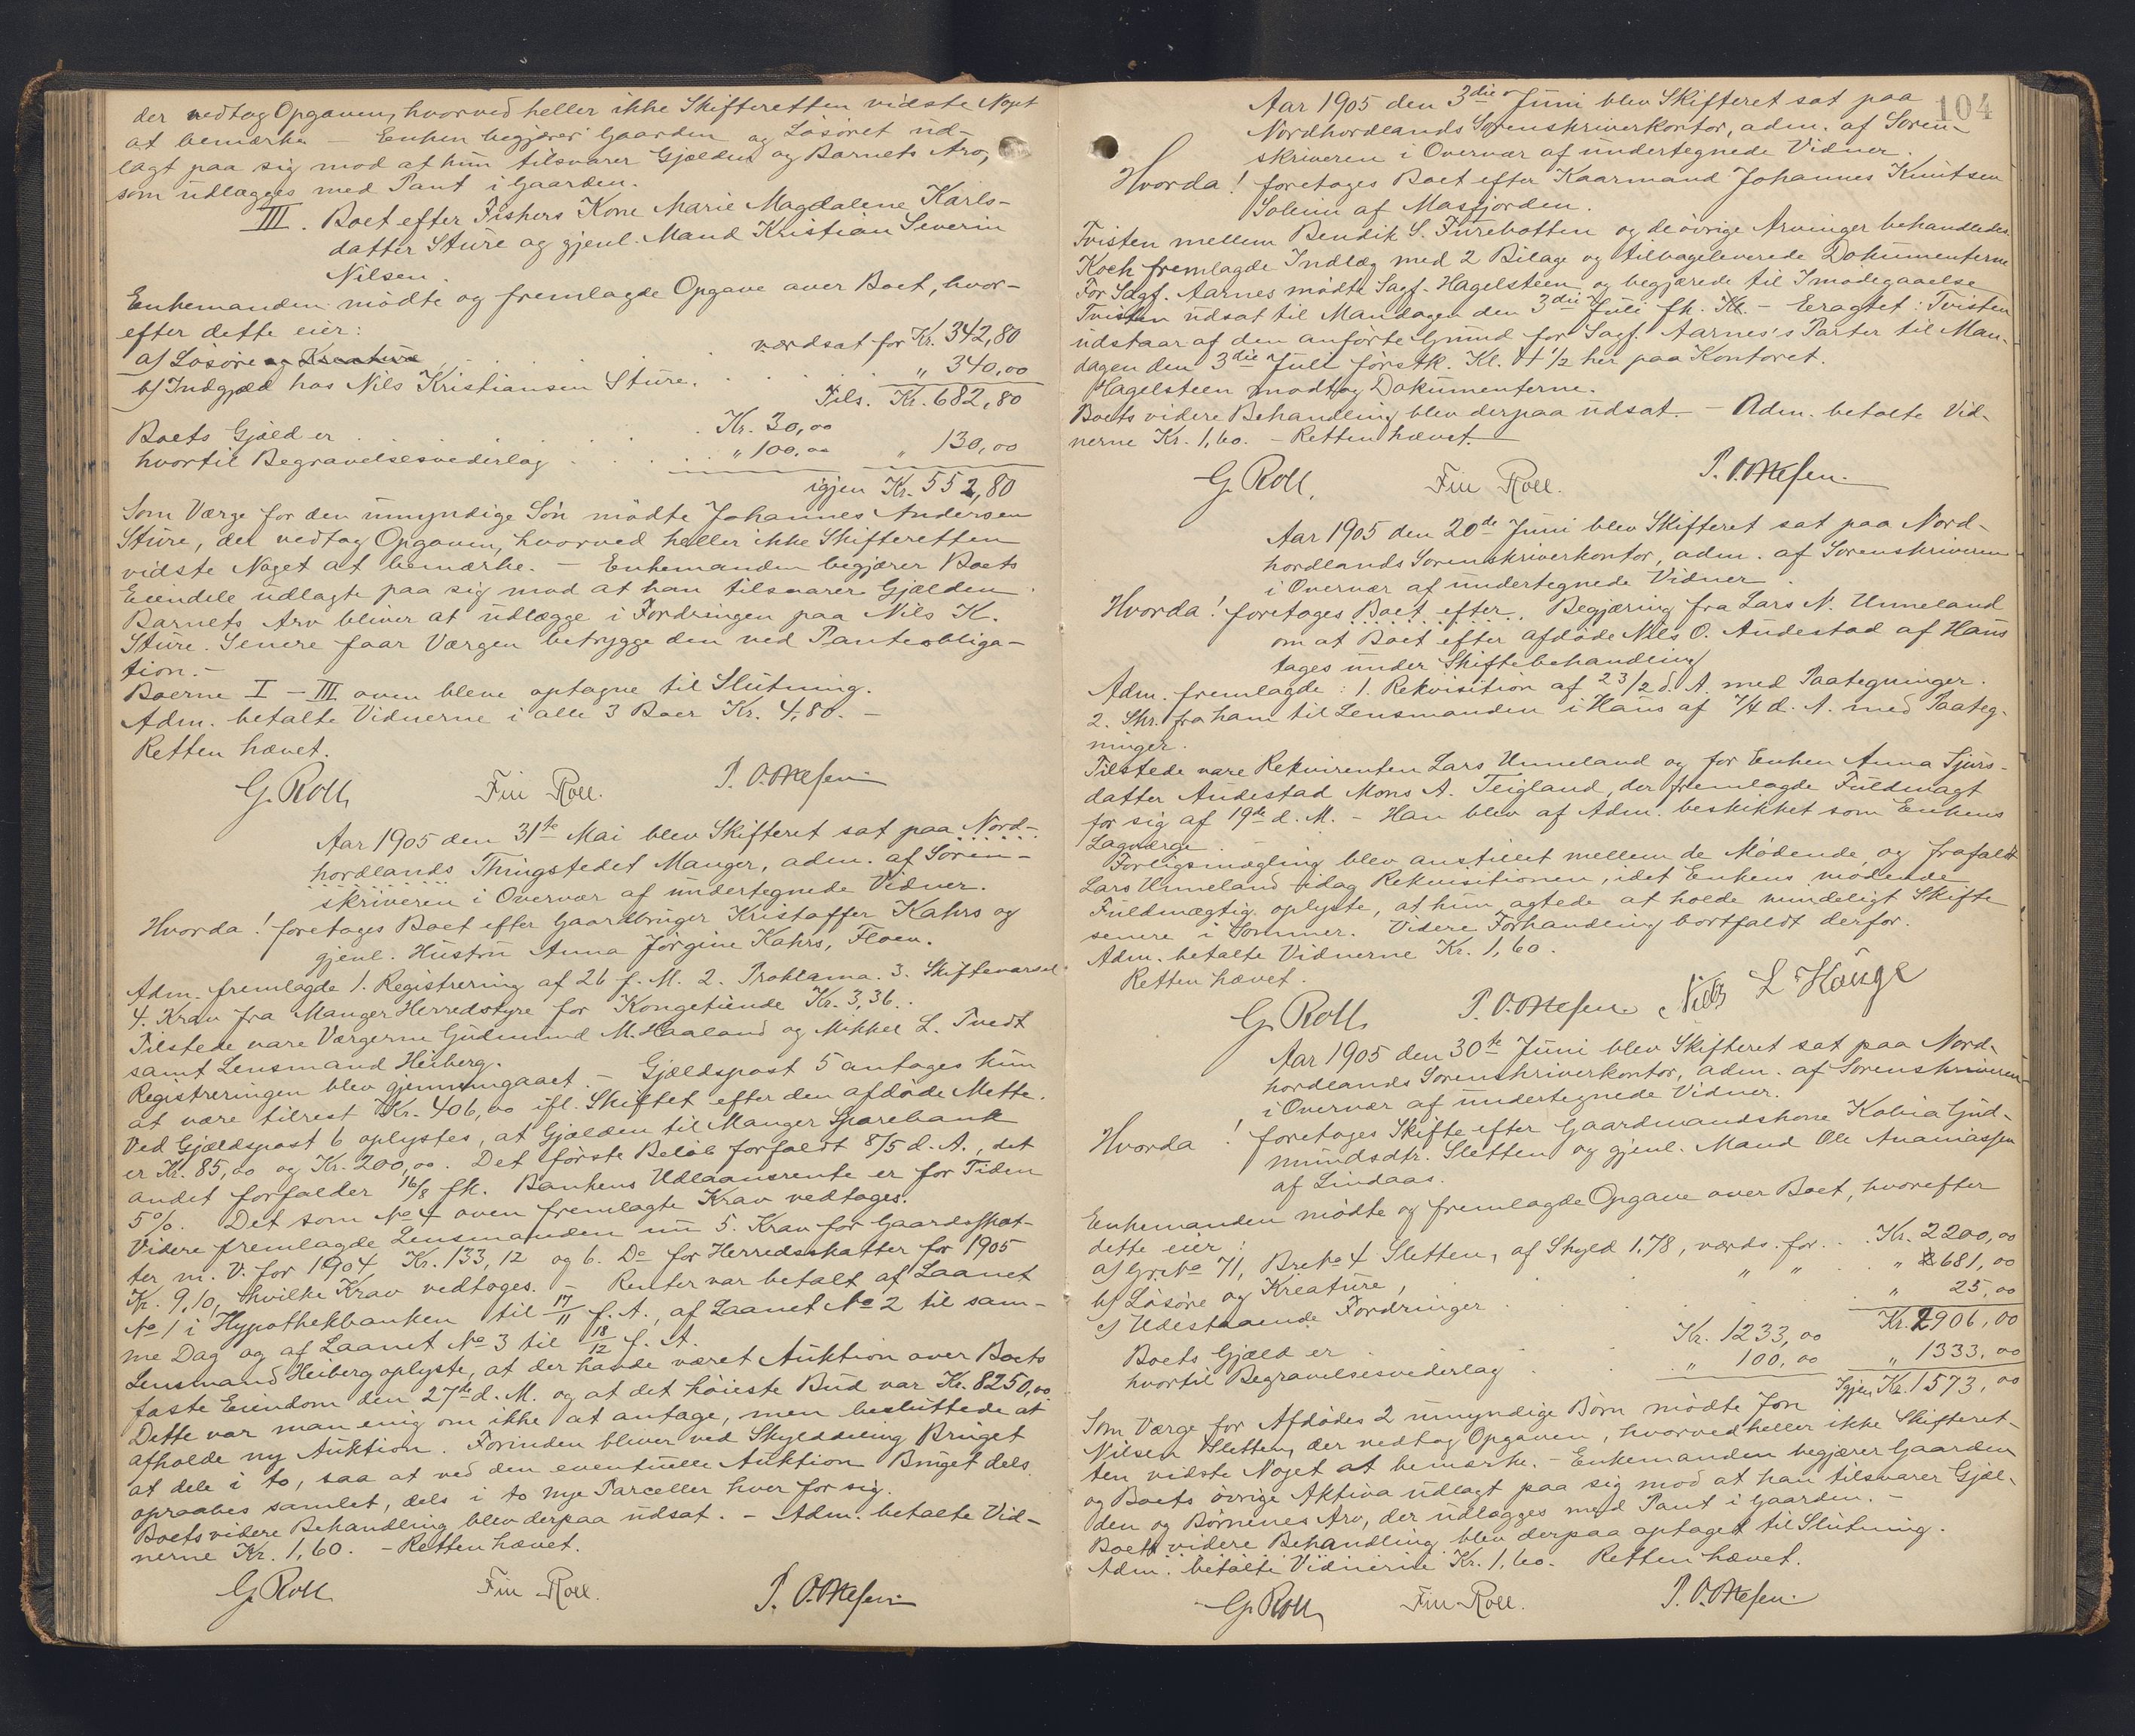 der vedtog Opgaven, hvorved heller ikke Skifteretten vidste Noget
at bemærke – Enken begjærer Gaarden og Løsøret ud-
lagt paa sig mod at hun tilsvarer Gjælden og Barnets Arv,
som udlægges med Pant i Gaarden.
III. Boet efter Fiskers Kone Marie Magdalene Karls-
datter Sture og gjenl. Mand Kristian Severin
Nilsen.
Enkemanden mødte og fremlagde Opgave over Boet, hvor-
efter dette eier:
a/ Løsøre og Kreature . . . værdsat for Kr. 342,80
b/ Indgjæld hos Nils Kristiansen Sture. . . . „ 340,00
Tils. Kr. 682,80
Boets Gjæld er . . . Kr. 30,00
hvortil Begravelsesvederlag . . . „ 100,00 „ 130,00
igjen Kr. 552,80
Som Værge for den umyndige Søn mødte Johannes Andersen
Sture, der vedtog Opgaven, hvorved heller ikke Skifteretten
vidste Noget at bemærke. – Enkemanden begjærer Boets
Eiendele udlagte paa sig mod at han tilsvarer Gjælden.
Barnets Arv bliver at udlægge i Fordringen paa Nils K.
Sture. Senere faar Værgen betrygge den ved Panteobliga-
tion. –
Boerne I – III oven bleve optagne til Slutning.
Adm. betalte Vidnerne i alle 3 Boer Kr. 4,80. –
Retten hævet.
G. Roll Fin Roll. P. Ottesen
Aar 1905 den 31te Mai blev Skifteret sat paa Nord-
hordlands Thingstedet Manger, adm. af Soren-
skriveren i Overvær af undertegnede Vidner.
Hvorda! foretages Boet efter Gaardbruger Kristoffer Kahrs og
gjenl. Hustru Anna Jørgine Kahrs, Floen.
Adm. fremlagde 1. Registrering af 26 f. M. 2. Proklama. 3. Skiftevarsel.
4. Krav fra Manger Herredstyre for Kongetiende Kr. 3,36.
Tilstede vare Værgerne Gudmund M. Haaland og Mikkel L. Tvedt
samt Lensmand Heiberg.
Registreringen blev gjennemgaaet. – Gjældspost 5 antages kun
at være tilrest Kr. 406,00 ifl. Skiftet efter den afdøde Mette.
Ved Gjældspost 6 oplystes, at Gjælden til Manger Sparebank
er Kr. 85,00 og Kr. 200,00. Det første Beløb forfaldt 8/5 d. A., det
andet forfalder 16/8 fk. Bankens Udlaansrente er for Tiden
5%. Det som No 4 oven fremlagte Krav vedtoges.
Videre fremlagde Lensmanden nu 5. Krav for Gaardsskat-
ter m. V. for 1904 Kr. 133,12 og 6. Do for Herredsskatter for 1905
Kr. 9,10, hvilke Krav vedtoges. – Renter var betalt af Laanet
No 1 i Hypothekbanken til 17/11 f. A., af Laanet No 2 til sam-
me Dag og af Laanet No 3 til 18/12 f. A.
Lensmand Heiberg oplyste, at der havde været Auktion over Boets
faste Eiendom den 27de d. M. og at det høieste Bud var Kr. 8250,00
Dette var man enig om ikke at antage, men besluttede at
afholde ny Auktion. Forinden bliver ved Skylddeling Bruget
at dele i to, saa at ved den eventuelle Auktion Bruget dels
opraabes samlet, dels i to nye Parceller hver for sig.
Boets videre Behandling blev derpaa udsat. – Adm. betalte Vid-
nerne Kr. 1,60. – Retten hævet.
G. Roll Fin Roll. P. Ottesen
104
Aar 1905 den 3die Juni blev Skifteret sat paa
Nordhordlands Sorenskriverkontor, adm. af Soren-
skriveren i Overvær af undertegnede Vidner.
Hvorda! foretages Boet efter Kaarmand Johannes Knutsen
Solheim af Masfjorden.
Tvisten mellem Bendik S. Furebotten og de øvrige Arvinger behandledes.
Koch fremlagde Indlæg med 2 Bilage og tilbageleverede Dokumenterne
For Sagf. Aarnes mødte Sagf. Hagelsteen og begjærede til Imødegaaelse
Tvisten udsat til Mandagen den 3die Juli fk. Kl. – Eragtet: Tvisten
udstaar af den anførte Grund for Sagf. Aarnes's Parter til Man-
dagen den 3die Juli førstk. Kl. 4 1/2 her paa Kontoret.
Hagelsteen modtog Dokumenterne.
Boets videre Behandling blev derpaa udsat. – Adm. betalte Vid-
nerne Kr. 1,60. – Retten hævet.
G. Roll. Fin Roll. P. Ottesen.
Aar 1905 den 20de Juni blev Skifteret sat paa Nord-
hordlands Sorenskriverkontor, adm. af Sorenskriveren
i Overvær af undertegnede Vidner.
Hvorda! foretages Boet efter. Begjæring fra Lars N. Unneland
om at Boet efter afdøde Nils O. Audestad af Haus
tages under Skiftebehandling
Adm. fremlagde: 1. Rekvisition af 23/2 d. A. med Paategninger.
2. Skr. fra ham til Lensmanden i Haus af 7/4 d. A. med Paateg-
ninger.
Tilstede vare Rekvirenten Lars Unneland og for Enken Anna Sjurs-
datter Audestad Mons A. Teigland, der fremlagde Fuldmagt
for sig af 19de d. M. – Han blev af Adm. beskikket som Enkens
Lagværge. –
Forligsmægling blev anstillet mellem de Mødende, og frafaldt
Lars Unneland idag Rekvisitionen, idet Enkens mødende
Fuldmægtig oplyste, at hun agtede at holde mindeligt Skifte
senere i Sommer. Videre Forhandling bortfaldt derfor.
Adm. betalte Vidnerne Kr. 1,60.
Retten hævet.
G. Roll P. Ottesen Nils L Hauge
Aar 1905 den 30te Juni blev Skifteret sat paa Nord-
hordlands Sorenskriverkontor, adm. af Sorenskriveren
i Overvær af undertegnede Vidner.
Hvorda! foretages Skifte efter Gaardmandskone Gud-
mundsdtr. Sletten og gjenl. Mand Ole Ananiassen
af Lindaas.
Enkemanden mødte og fremlagde Opgave over Boet, hvorefter
dette eier:
a/ Gr.No 71, Br.No 4 Sletten, af Skyld 1,78, værds. for . . Kr. 2200,00
b/ Løsøre og Kreature, „ „ . „ 681,00
c/ Udestaaende Fordringer . . . „ 25,00
Kr. 2906,00
Boets Gjæld er . . . Kr. 1233,00
hvortil Begravelsesvederlag . . . „ 100,00 „ 1333,00
Igjen Kr. 1573,00
Som Værge for Afdødes 2 umyndige Børn mødte Jon
Nilsen Sletten, der vedtog Opgaven, hvorved heller ikke Skifteret-
ten vidste Noget at bemærke. – Enkemanden begjærer Gaarden
og Boets øvrige Aktiva udlagt paa sig mod at han tilsvarer Gjæl-
den og Børnenes Arv, der udlægges med Pant i Gaarden. –
Boets videre Behandling blev derpaa optaget til Slutning.
Adm. betalte Vidnerne Kr. 1,60. Retten hævet.
G. Roll Fin Roll. P. Ottesen